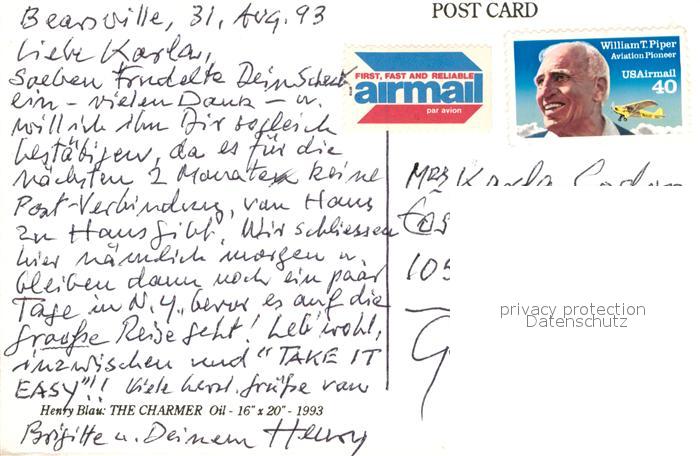 Bearsville, 31. Aug. 93
POST CARD
Liebe Karla,
Soeben trudelte Dein Scheck
ein - vielen Dank - u.
will ich ihn Dir sogleich
bestätigen, da es für die
nächsten 2 Monate keine
Post-Verbindung, von Haus
zu Haus gibt. Wir schliessen
hier nämlich morgen u.
bleiben dann noch ein paar
Tage in N.Y., bevor es auf die
graoße Reise geht! Leb' wohl,
inzwischen und "TAKE IT
EASY"!! Viele herzl. Grüße von
Henry Blau: THE CHARMER Oil - 16" x 20" - 1993
Brigitte u. Deinem Henry
FIRST, FAST AND RELIABLE
airmail
par avion
William T. Piper
Aviation Pioneer
USAirmail
40
Mrs Karla
105
privacy protection
Datenschutz